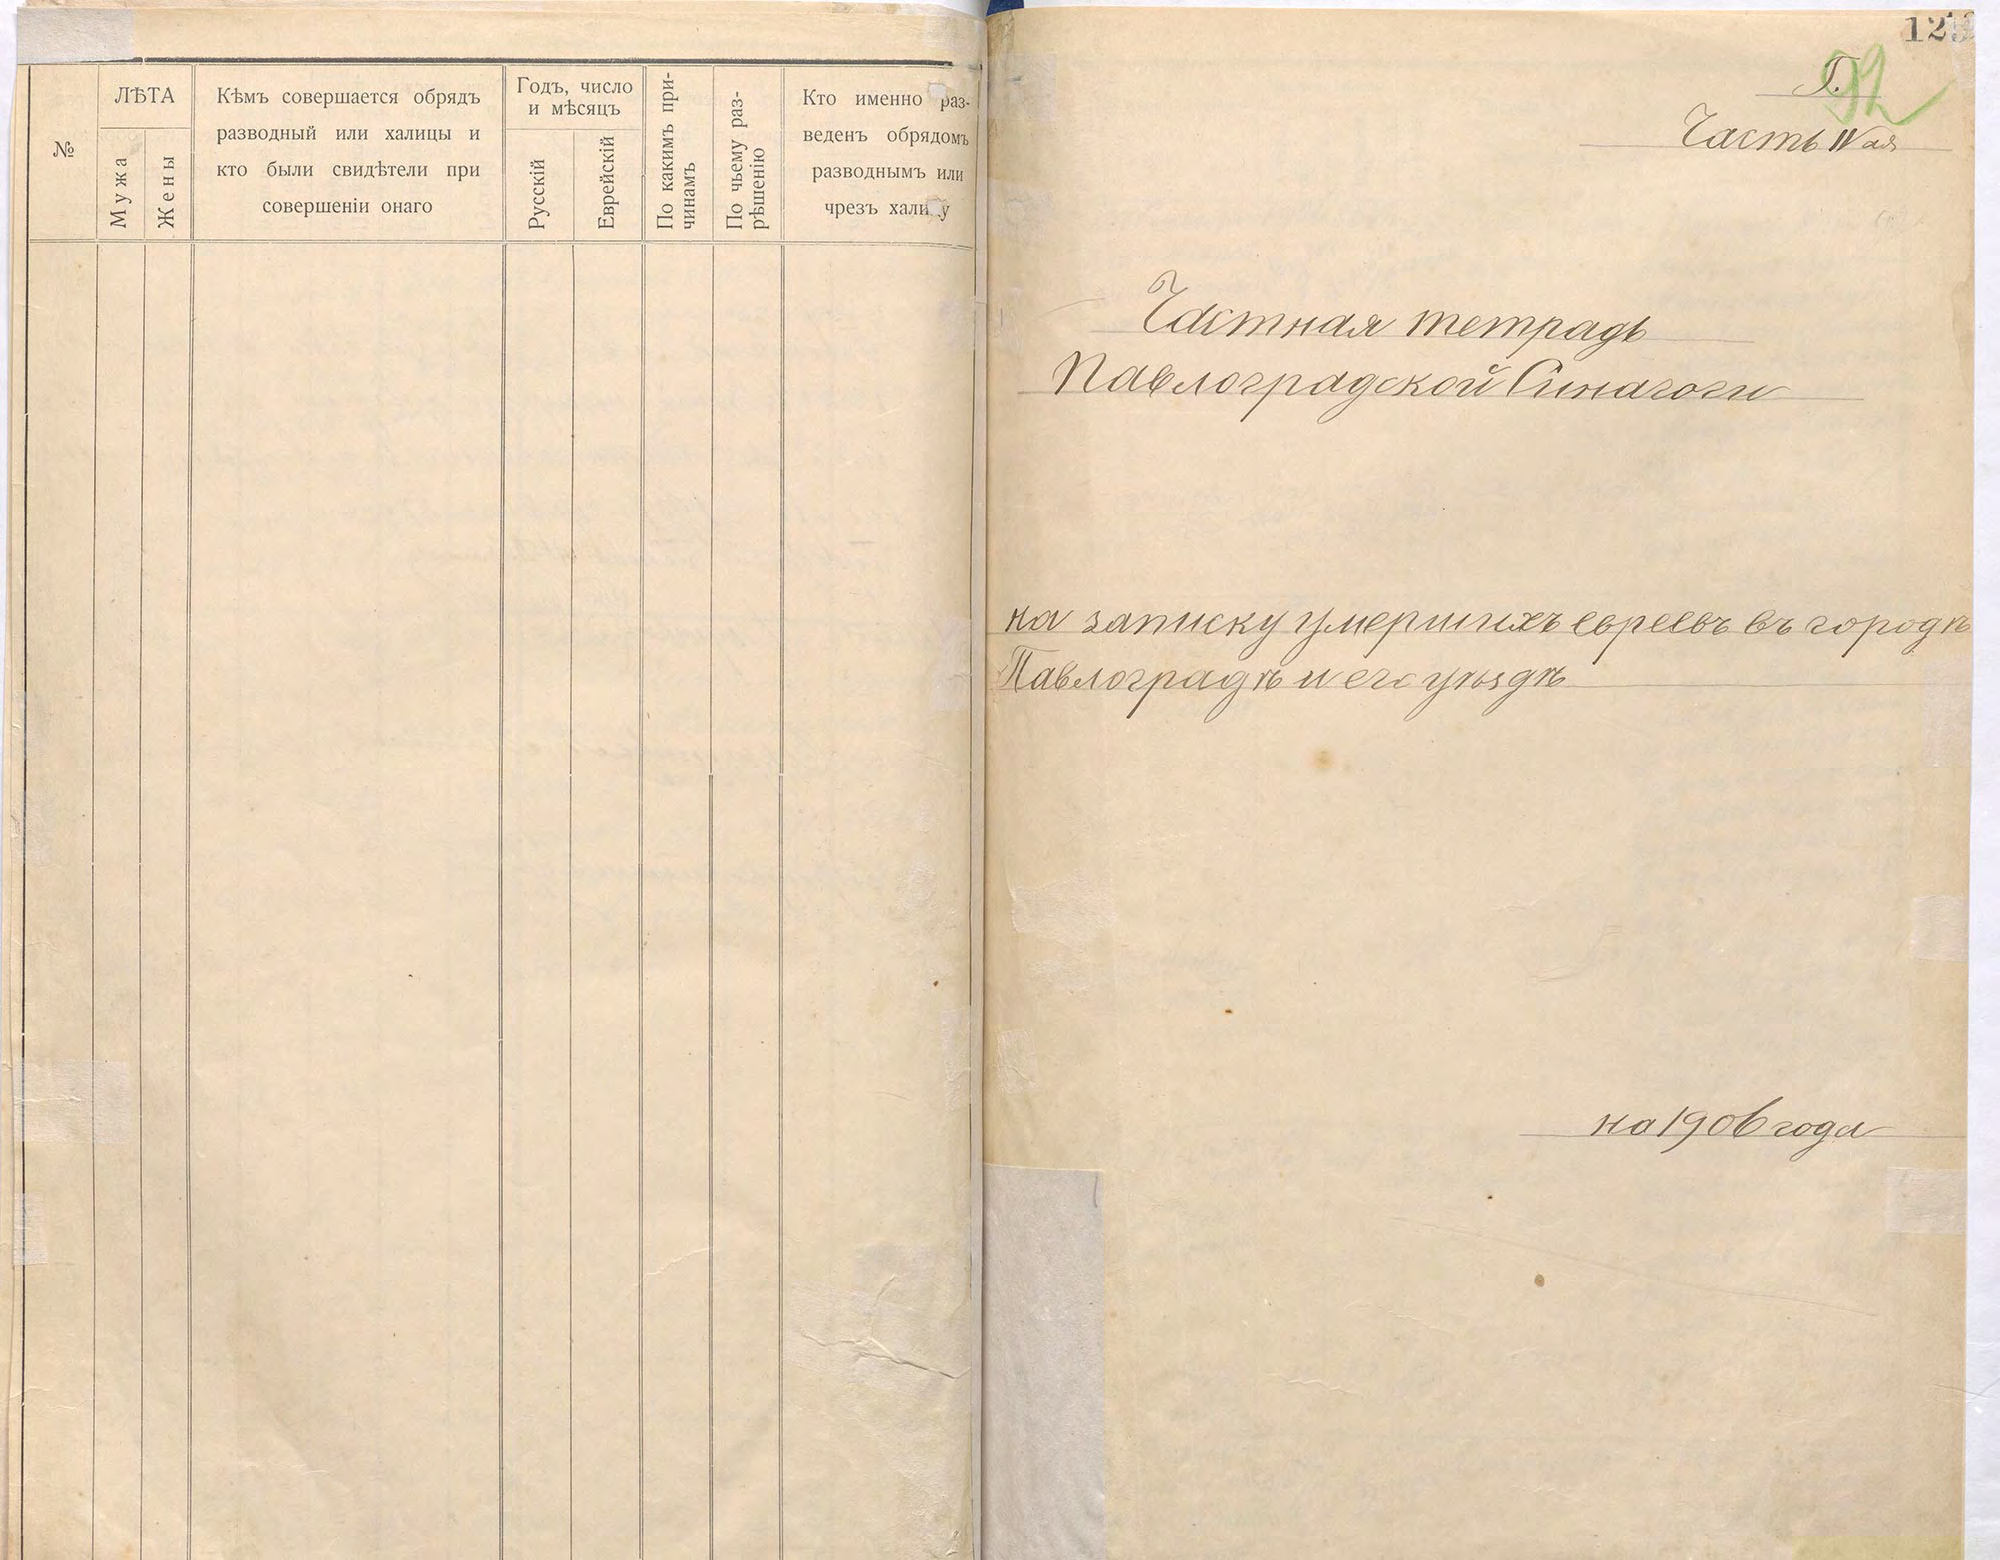 №
ЛѢТА
Мужа
Жены
Кѣмъ совершается обрядъ
разводный или халицы и
кто были свидѣтели при
совершеніи онаго
Годъ, число
и мѣсяцъ
Русскій
Еврейскій
По какимъ при-
чинамъ
По чьему раз-
рѣшенію
Кто именно раз-
веденъ обрядомъ
разводнымъ или
чрезъ халицу
Г.
92
Часть IV ая
Частная тетрадь
Павлоградской Синагоги
на записку умершихъ евреевъ въ городѣ
Павлоградѣ и его уѣздѣ
на 1906 года